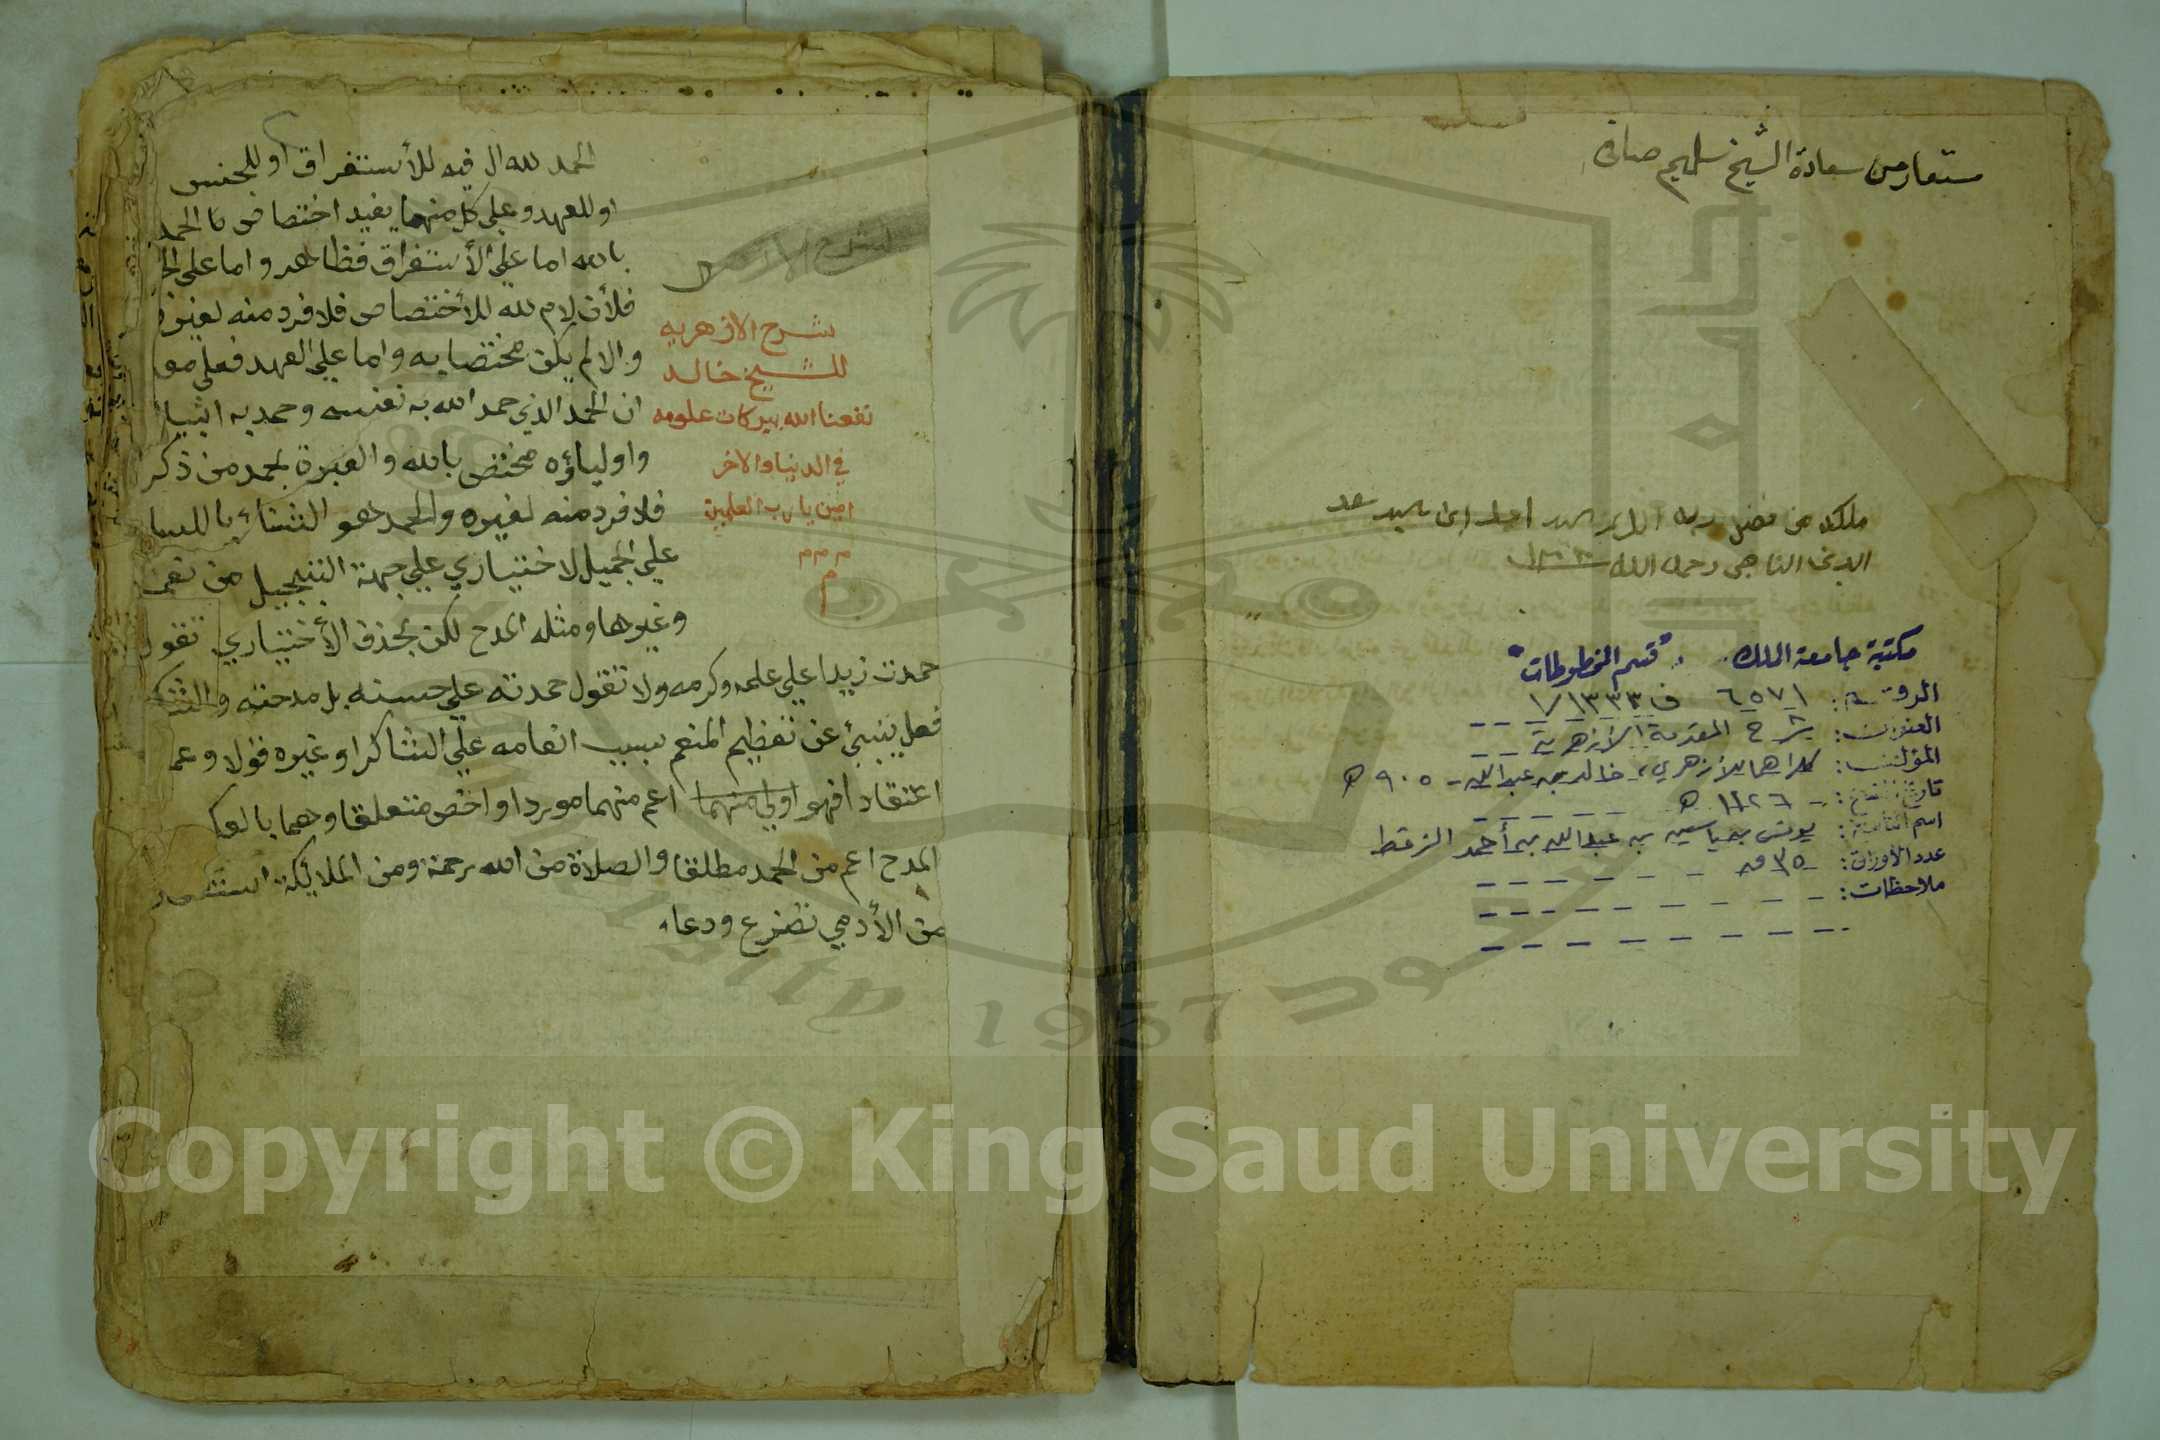 مستعار من سعادة الشيخ سليم
ملكه من فضل ربه احمد ابن سعيد سعد
الدين الناجي رحمه الله
مكتبة جامعة الملك "قسم المخطوطات"
الرقم: ٦٥٧١ ف ١/١٣٣٣
العنوان: شرح المقدمة الأزهرية
المؤلف: كلاهما للأزهري، خالد بن عبد الله - ٩٠٥ هـ
تاريخ النسخ: ١١٢٦ هـ
اسم الناسخ: يونس بن ياسين بن عبد الله بن أحمد
عدد الأوراق: ٣٥ ق
ملاحظات:
شرح الازهريه
للشيخ خالد
نفعنا الله ببركات علومه
في الدنيا والاخر
امين يا رب العلمين
م م م
م
الحمد لله ال فيه للأستغراق او للجنس
او للعهد وعلي كل منهما يفيد اختصاص الحمد
بالله اما علي الأستغراق فظاهر واما علي
فلأن لام لله للأختصاص فلا فرد منه لغيره
والا لم يكن مختصا به واما علي العهد فعلي
ان الحمد الذي حمد الله به نفسه وحمده به
واولياؤه مختص بالله والعبرة بحمد من ذكر
فلا فرد منه لغيره والحمد هو الثناء باللسا
علي الجميل لاختياري علي جهة التبجيل من
وغيرها ومثله المدح لكن بحذف الأختياري تقول
حمدت زيدا علي علمه وكرمه ولا تقول حمدته علي حسنه بل مدحته
فعل ينبئ عن تعظيم المنعم بسبب انعامه علي الشاكر او غيره قولا وعم
اعتقادا فهو اولي منهما اعم منهما موردا واخص متعلقا وهما بالعك
المدح اعم من الحمد مطلقا والصلاة من الله رحمة ومن الملايكة
من الأدمي تضرع ودعاء
Copyright © King Saud University
1957